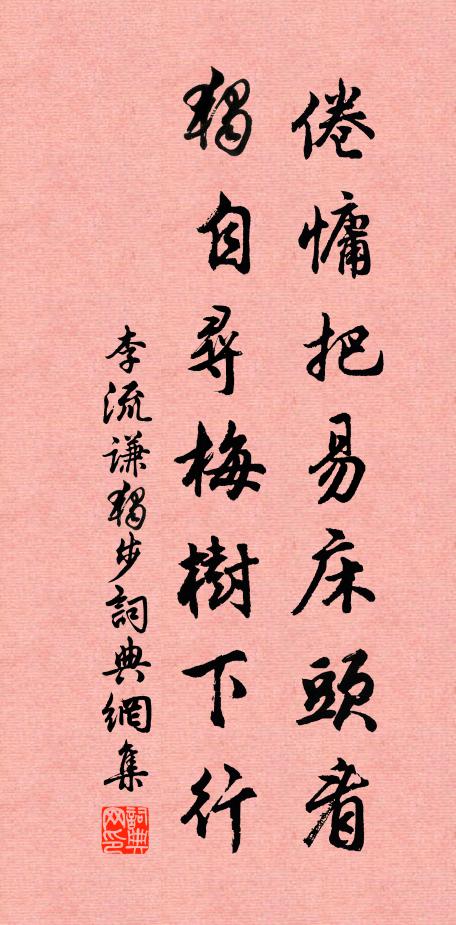 倦慵把易床頭看
獨自尋梅樹下行
李流謙獨步詞典網集
詞典网印